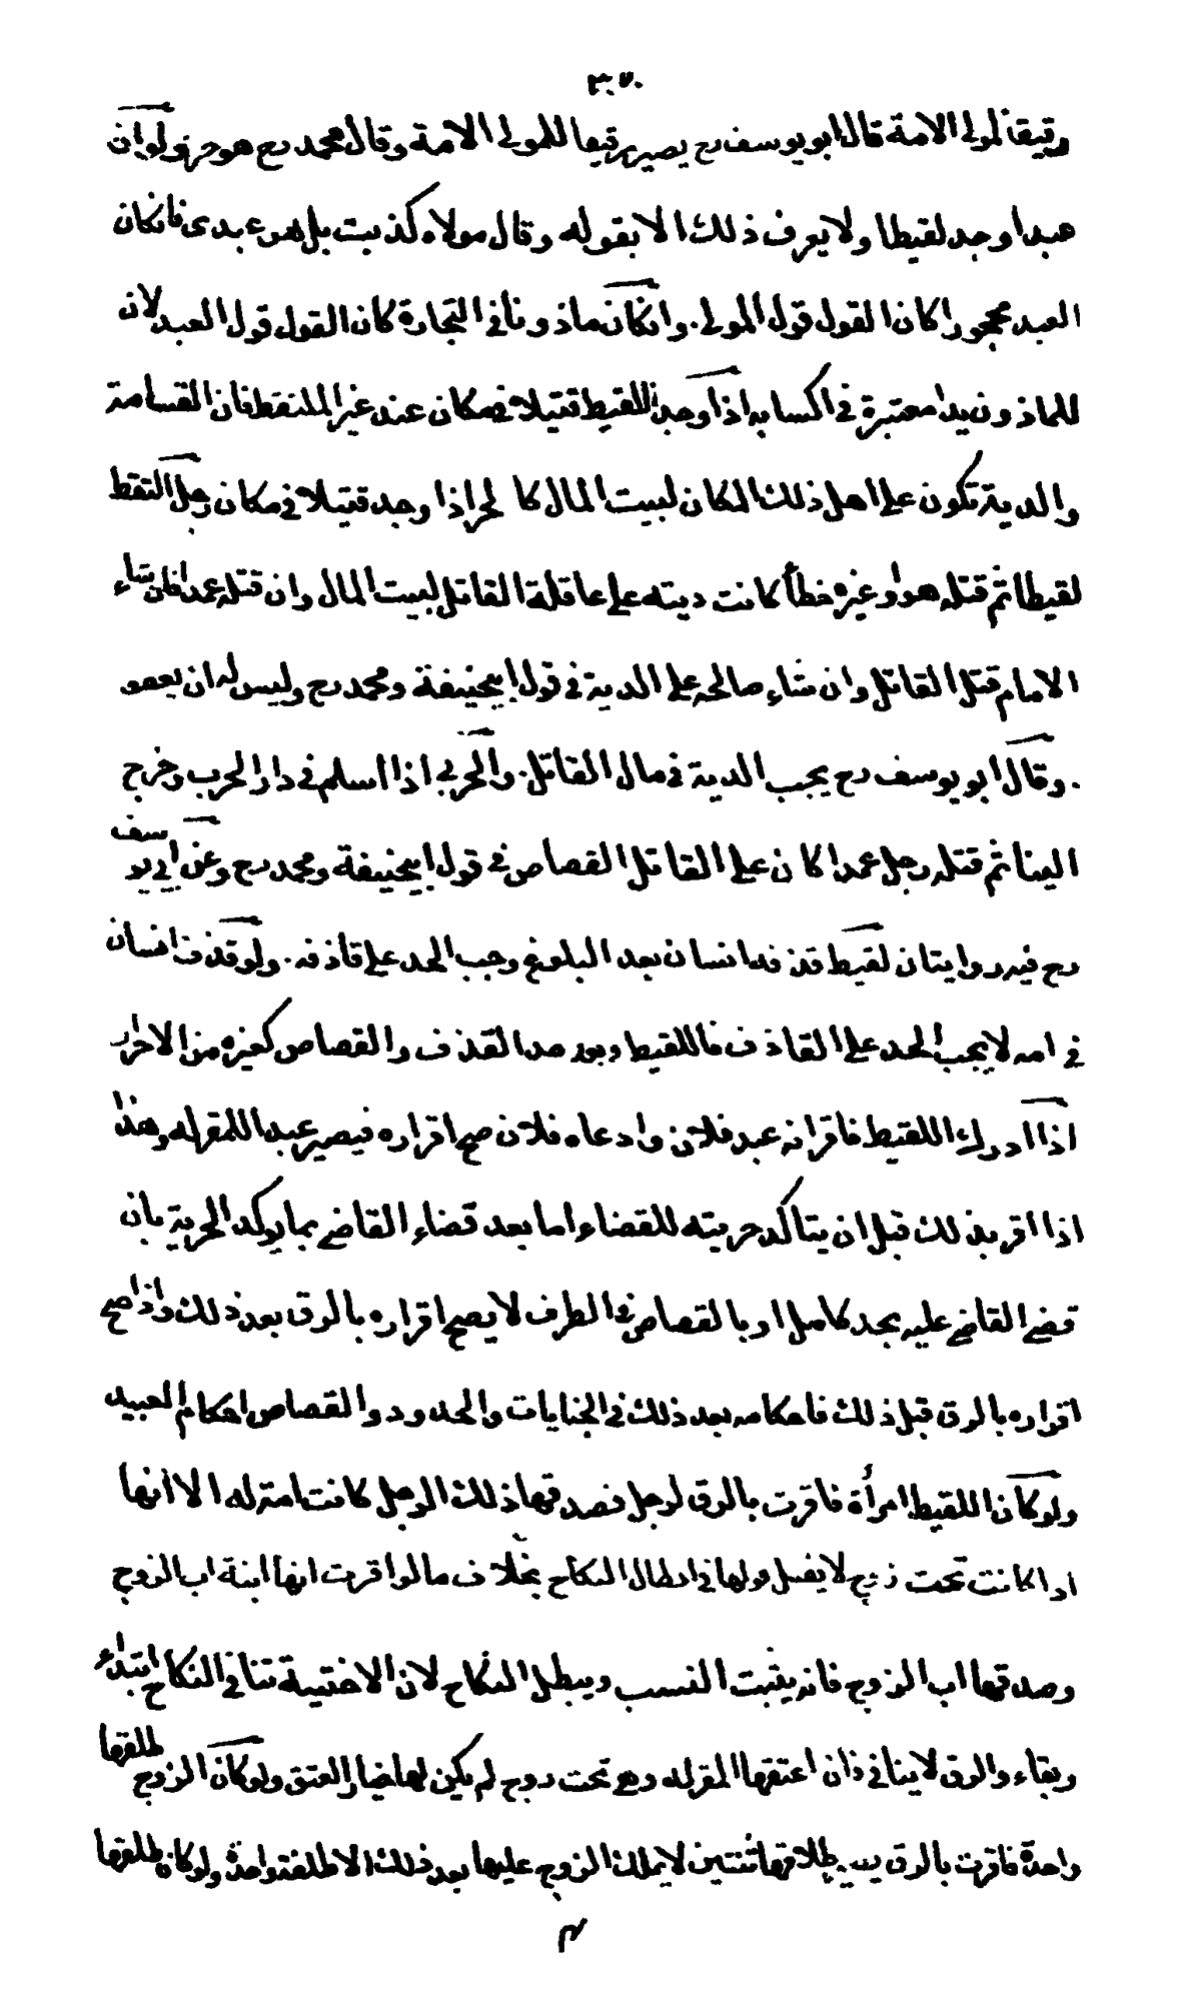 ٣٧٠
رقيقا لمولى الامة قال ابو يوسف رح يصير رقيقا للمولى الامة وقال محمد رح هو حر ولو ان
عبدا وجد لقيطا ولا يعرف ذلك الا بقوله وقال مولاه كذبت بل هو عبدى فانكان
العبد محجورا كان القول قول المولى. وانكان ماذونا فى التجارة كان القول قول العبد لان
للماذون يدا معتبرة فى اكسابه اذا وجد اللقيط قتيلا فى مكان عند غير الملتقط فان القسامة
والدية تكون على اهل ذلك المكان لبيت المال كا لحر اذا وجد قتيلا فى مكان رجل التقط
لقيطا ثم قتله هو او غيره خطأ كانت ديته على عاقلة القاتل لبيت المال وان قتله عمدا فان شاء
الامام قتل القاتل وان شاء صالحه على الدية فى قول ابيحنيفة ومحمد رح وليس له ان يعفو
. وقال ابو يوسف رح يجب الدية فى مال القاتل. والحربى اذا اسلم فى دار الحرب وخرج
الينا ثم قتله رجل عمدا كان على القاتل القصاص فى قول ابيحنيفة ومحمد رح وعن ابى يوسف
رح فيه روايتان لقيط قذفه انسان بعد البلوغ وجب الحد على قاذفه. ولو قذف انسان
فى امه لا يجب الحد على القاذف فاللقيط وبعد القذف والقصاص كغيره من الاحرار
اذا ادرك اللقيط فاقر انه عبد فلان وادعاه فلان صح اقراره فيصير عبدا للمقر له وهذا
اذا اقر بذلك قبل ان يتاكد حريته للقضاء اما بعد قضاء القاضى بما يوكد الحرية بان
قضى القاضى عليه بحد كامل او بالقصاص فى الطرف لا يصح اقراره بالرق بعد ذلك واذا صح
اقراره بالرق قبل ذلك فاحكامه بعد ذلك فى الجنايات والحدود والقصاص احكام العبيد
ولو كان اللقيط امرأة فاقرت بالرق لرجل فصدقها ذلك الرجل كانت امة له الا انها
اذا كانت تحت زوج لا يقبل قولها فى ابطال النكاح بخلاف ما لو اقرت انها ابنة اب الزوج
وصدقها اب الزوج فانه يثبت النسب ويبطل النكاح لان الاختية تنافى النكاح ابتداء
وبقاء والرق لا ينافى وان اعتقها المقر له وهى تحت زوج لم يكن لها خيار العتق ولو كان الزوج طلقها
واحدة فاقرت بالرق يصير طلاقها ثنتين لا يملك الزوج عليها بعد ذلك الا طلقة واحدة ولو كان طلقها